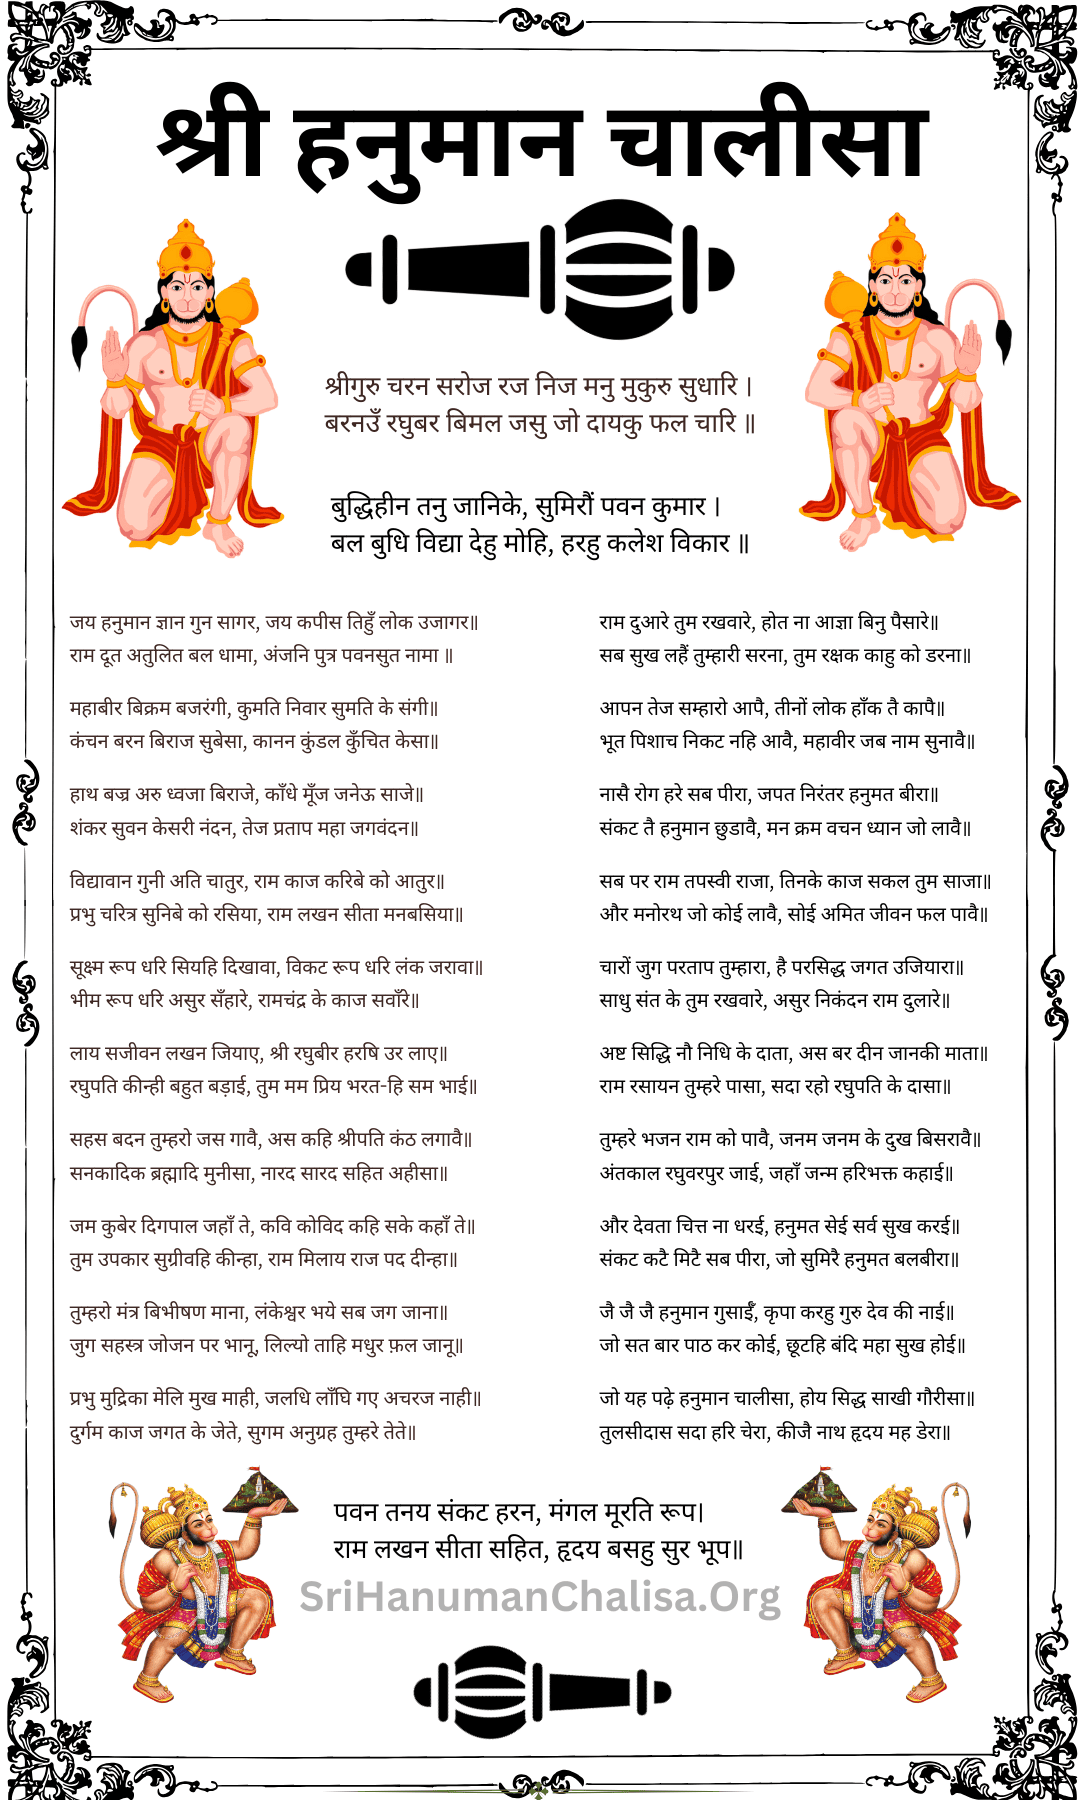 श्री हनुमान चालीसा
श्रीगुरु चरन सरोज रज निज मनु मुकुरु सुधारि ।
बरनउँ रघुबर बिमल जसु जो दायकु फल चारि ॥
बुद्धिहीन तनु जानिके, सुमिरौं पवन कुमार ।
बल बुधि विद्या देहु मोहि, हरहु कलेश विकार ॥
जय हनुमान ज्ञान गुन सागर, जय कपीस तिहुँ लोक उजागर॥
राम दूत अतुलित बल धामा, अंजनि पुत्र पवनसुत नामा ॥
महाबीर बिक्रम बजरंगी, कुमति निवार सुमति के संगी॥
कंचन बरन बिराज सुबेसा, कानन कुंडल कुँचित केसा॥
हाथ बज्र अरु ध्वजा बिराजे, काँधे मूँज जनेऊ साजे॥
शंकर सुवन केसरी नंदन, तेज प्रताप महा जगवंदन॥
विद्यावान गुनी अति चातुर, राम काज करिबे को आतुर॥
प्रभु चरित्र सुनिबे को रसिया, राम लखन सीता मनबसिया॥
सूक्ष्म रूप धरि सियहि दिखावा, विकट रूप धरि लंक जरावा॥
भीम रूप धरि असुर सँहारे, रामचंद्र के काज सवाँरे॥
लाय सजीवन लखन जियाए, श्री रघुबीर हरषि उर लाए॥
रघुपति कीन्ही बहुत बड़ाई, तुम मम प्रिय भरत-हि सम भाई॥
सहस बदन तुम्हरो जस गावै, अस कहि श्रीपति कंठ लगावै॥
सनकादिक ब्रह्मादि मुनीसा, नारद सारद सहित अहीसा॥
जम कुबेर दिगपाल जहाँ ते, कवि कोविद कहि सके कहाँ ते॥
तुम उपकार सुग्रीवहि कीन्हा, राम मिलाय राज पद दीन्हा॥
तुम्हरो मंत्र बिभीषण माना, लंकेश्वर भये सब जग जाना॥
जुग सहस्त्र जोजन पर भानू, लिल्यो ताहि मधुर फ़ल जानू॥
प्रभु मुद्रिका मेलि मुख माही, जलधि लाँघि गए अचरज नाही॥
दुर्गम काज जगत के जेते, सुगम अनुग्रह तुम्हरे तेते॥
राम दुआरे तुम रखवारे, होत ना आज्ञा बिनु पैसारे॥
सब सुख लहैं तुम्हारी सरना, तुम रक्षक काहु को डरना॥
आपन तेज सम्हारो आपै, तीनों लोक हाँक तै कापै॥
भूत पिशाच निकट नहि आवै, महावीर जब नाम सुनावै॥
नासै रोग हरे सब पीरा, जपत निरंतर हनुमत बीरा॥
संकट तै हनुमान छुडावै, मन क्रम वचन ध्यान जो लावै॥
सब पर राम तपस्वी राजा, तिनके काज सकल तुम साजा॥
और मनोरथ जो कोई लावै, सोई अमित जीवन फल पावै॥
चारों जुग परताप तुम्हारा, है परसिद्ध जगत उजियारा॥
साधु संत के तुम रखवारे, असुर निकंदन राम दुलारे॥
अष्ट सिद्धि नौ निधि के दाता, अस बर दीन जानकी माता॥
राम रसायन तुम्हरे पासा, सदा रहो रघुपति के दासा॥
तुम्हरे भजन राम को पावै, जनम जनम के दुख बिसरावै॥
अंतकाल रघुवरपुर जाई, जहाँ जन्म हरिभक्त कहाई॥
और देवता चित्त ना धरई, हनुमत सेई सर्व सुख करई॥
संकट कटै मिटै सब पीरा, जो सुमिरै हनुमत बलबीरा॥
जै जै जै हनुमान गुसाईँ, कृपा करहु गुरु देव की नाई॥
जो सत बार पाठ कर कोई, छूटहि बंदि महा सुख होई॥
जो यह पढ़े हनुमान चालीसा, होय सिद्ध साखी गौरीसा॥
तुलसीदास सदा हरि चेरा, कीजै नाथ हृदय मह डेरा॥
पवन तनय संकट हरन, मंगल मूरति रूप।
राम लखन सीता सहित, हृदय बसहु सुर भूप॥
SriHanumanChalisa.Org